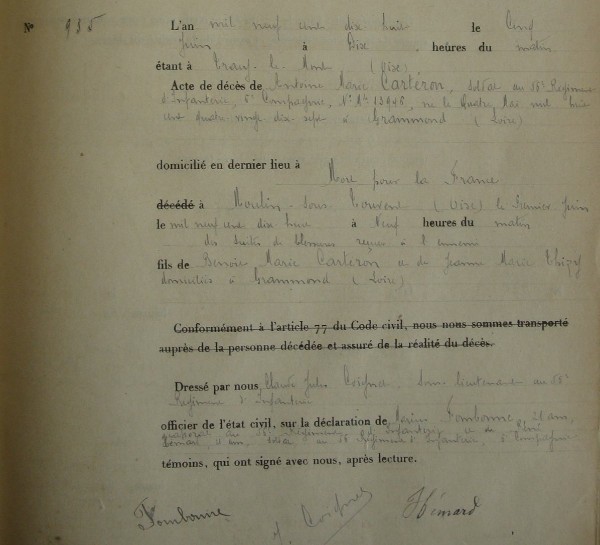 N° 935
L'an mil neuf cent dix huit le Cinq
juin à Dix heures du matin
étant à Tracy-le-Mont (Oise)
Acte de décès de Antoine Marie Cartéron, soldat au Régiment
d'Infanterie, 6e Compagnie, N° Mle né le Quatre Mai mil huit
cent quatre vingt dix sept à Grammond (Loire)
domicilié en dernier lieu à
Mort pour la France
décédé à Moulin-sous-Touvent (Oise) le Premier juin
le mil neuf cent dix huit à Neuf heures du matin
des suites de blessures reçues à l'ennemi
fils de Benoit Marie Cartéron et de Jeanne Marie
domiciliés à Grammond (Loire)
Conformément à l'article 77 du Code civil, nous nous sommes transporté
auprès de la personne décédée et assuré de la réalité du décès.
Dressé par nous, Claude Jules Coignet, Sous lieutenant au
Régiment d'Infanterie
officier de l'état civil, sur la déclaration de Fombonne,
Régiment d'Infanterie et de
Hémard, soldat au Régiment d'Infanterie Compagnie
témoins, qui ont signé avec nous, après lecture.
Fombonne Coignet Hémard